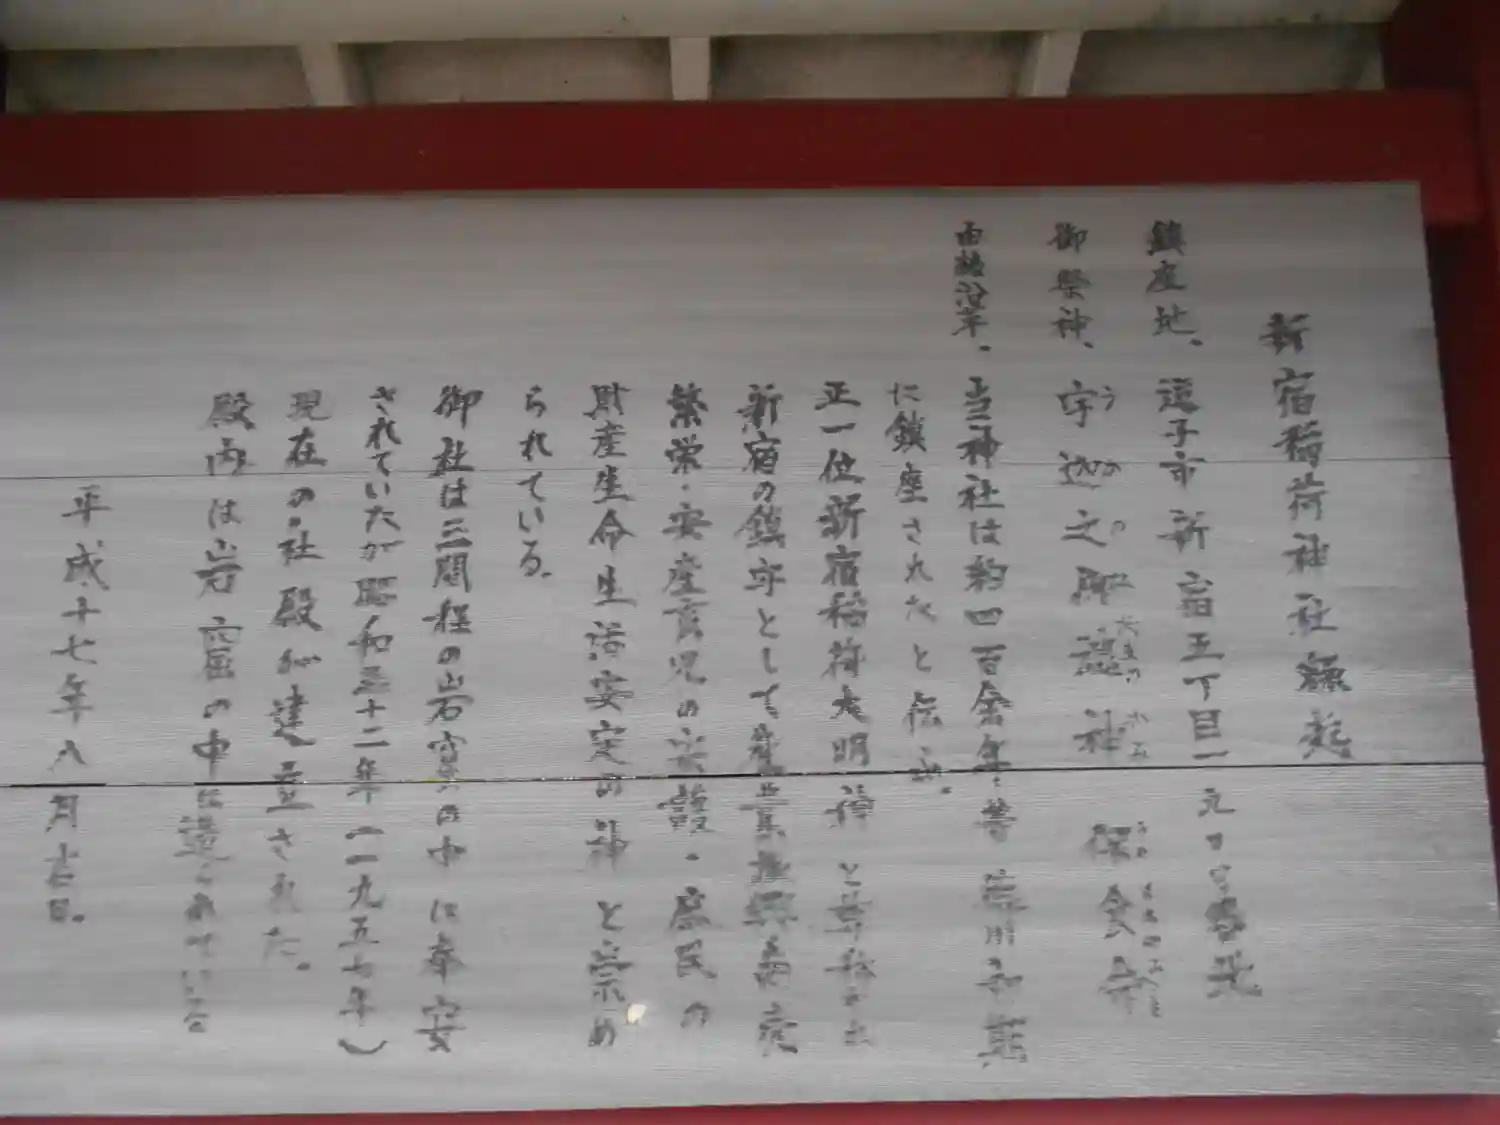 新宿稲荷神社縁起
鎮座地、逗子市新宿五丁目一
御祭神、宇迦之御魂神 保食命
うかの
由緒沿革、当神社は約四百余年昔
に鎮座されたと伝ふ。
正一位新宿稲荷大明神と
新宿の鎮守として産業
繁栄・安産育児の・庶民の
財産生命生活安定の神と崇め
られている。
御社は三間程の岩窟の中に奉安
されていたが昭和三十二年(一九五七年)
現在の社殿が建立された。
殿内は岩窟の中に造られている
平成十七年八月吉日。